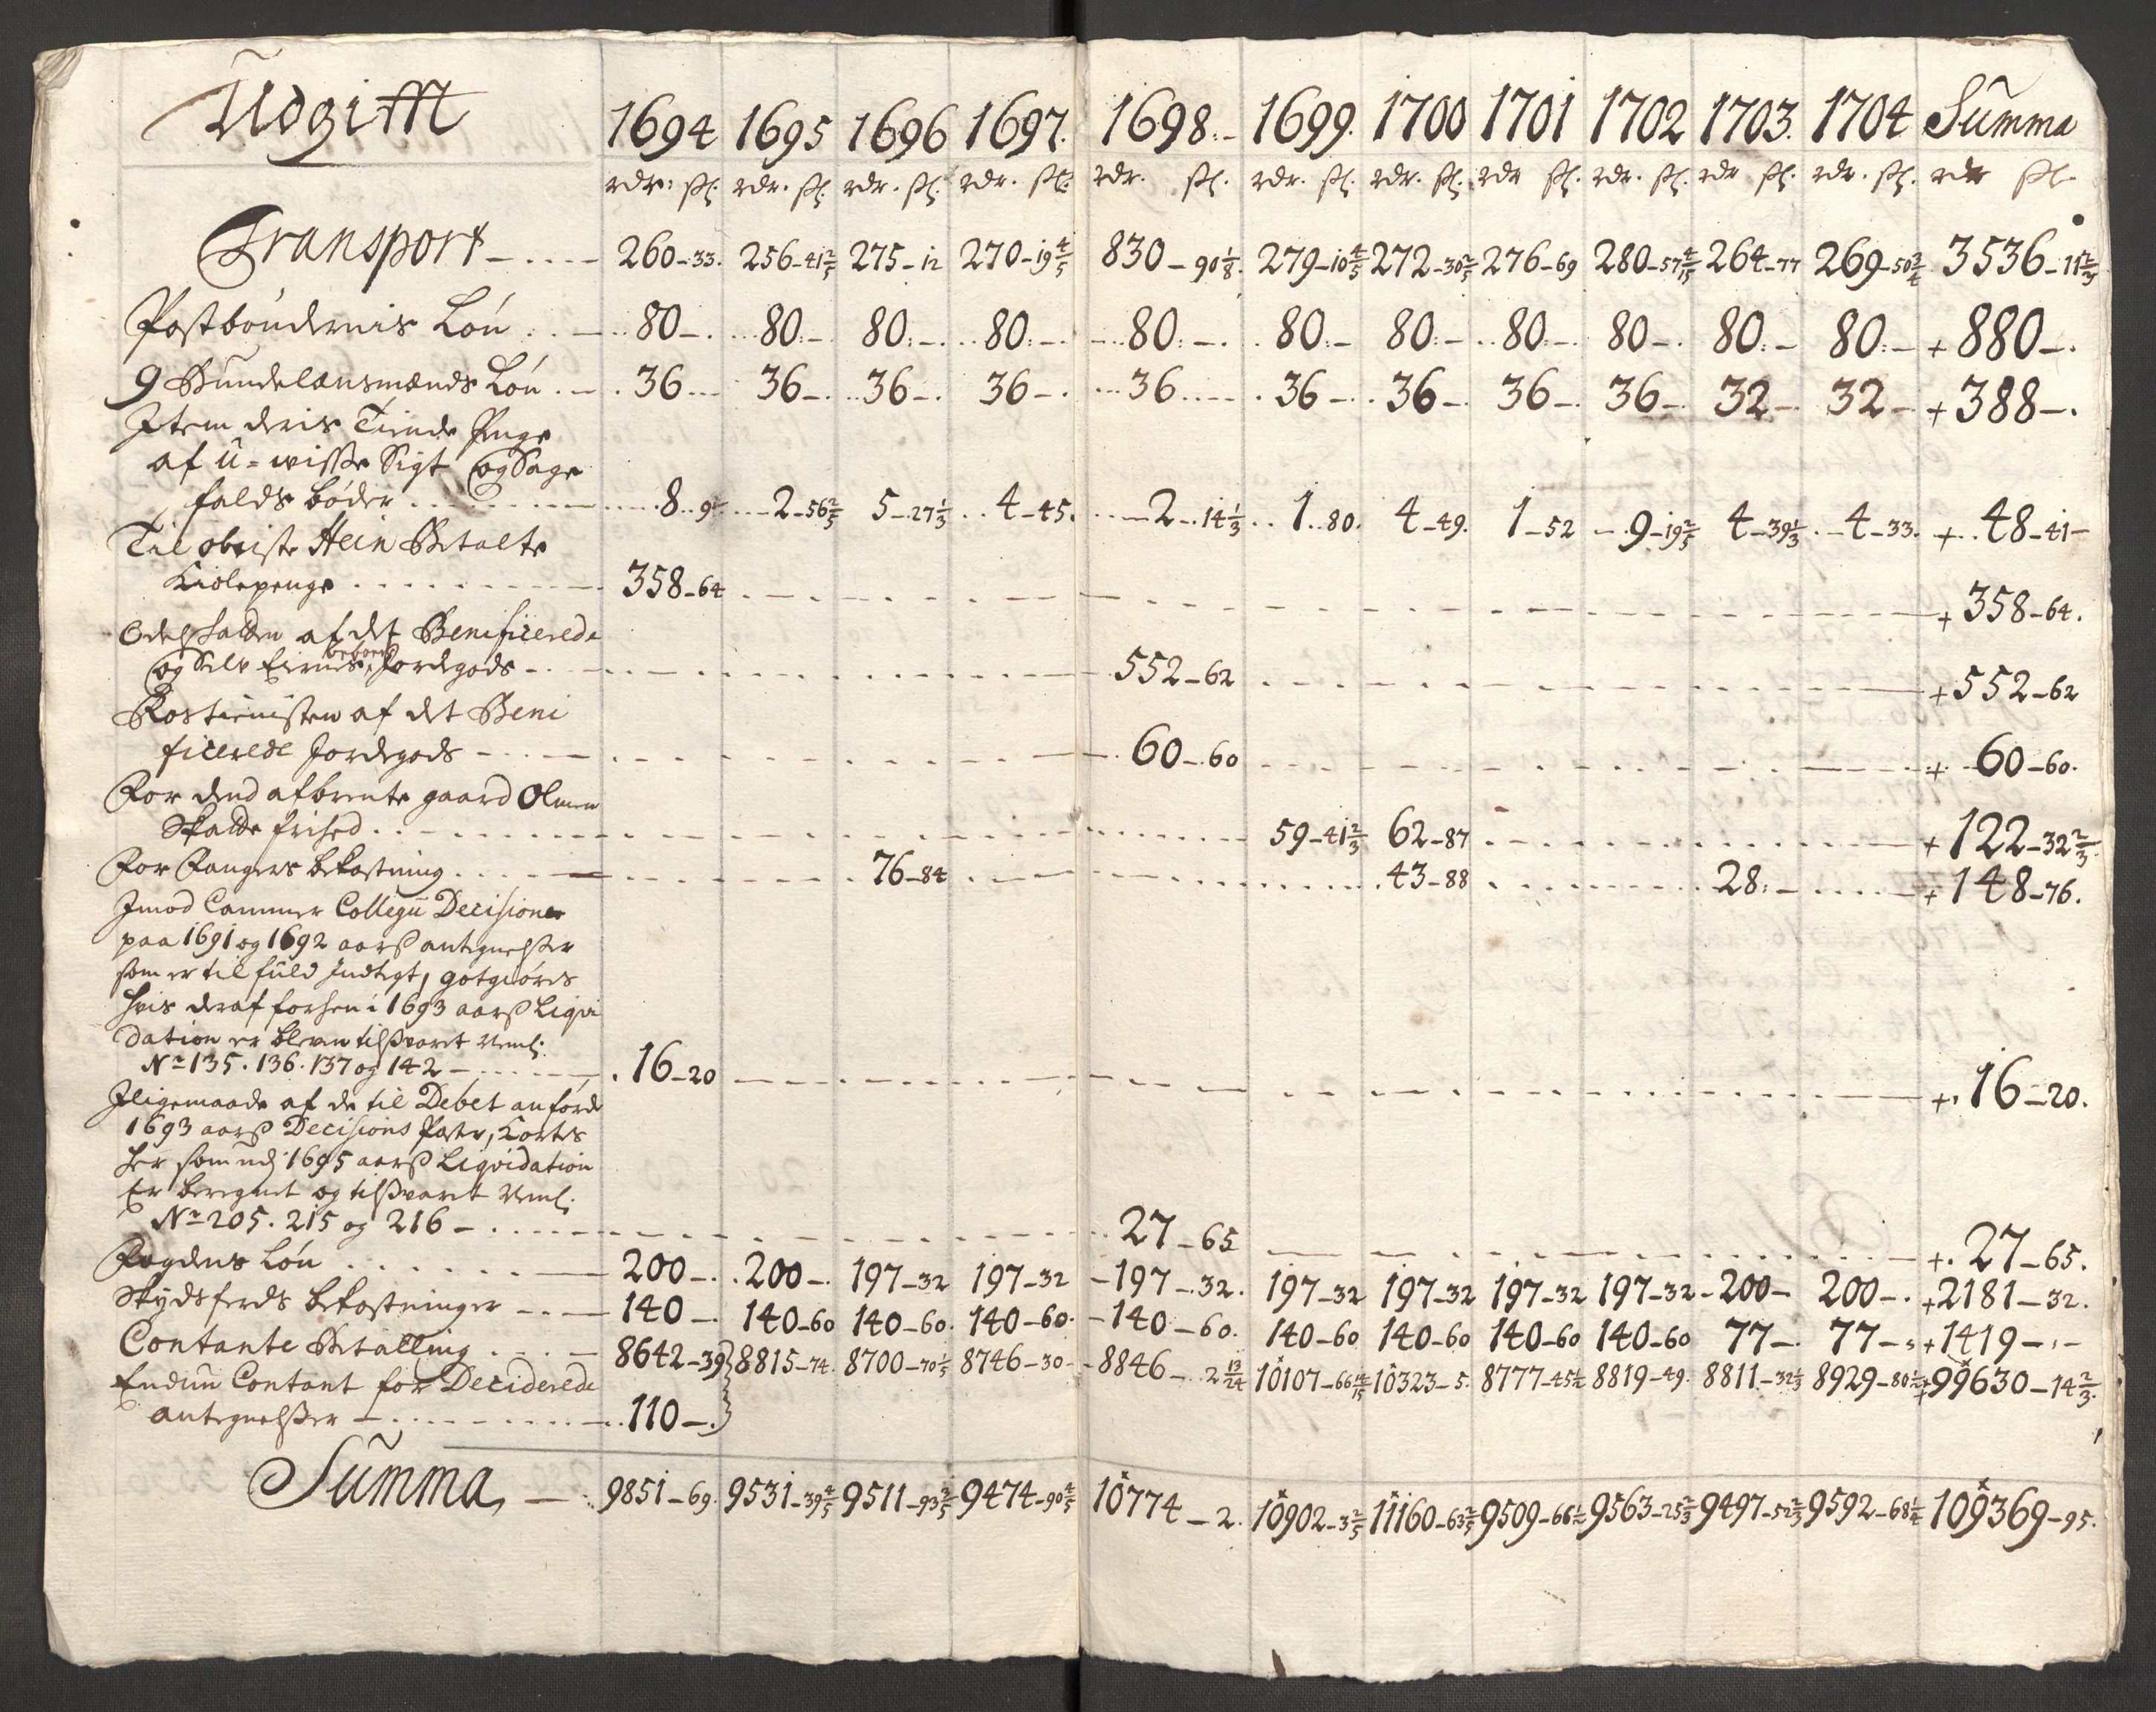 Udgifft 1694 1695 1696 1697. 1698.- 1699. 1700 1701 1702 1703. 1704 Summa
rdr. sk. rdr. sk. rdr. sk. rdr. sk. rdr. sk. rdr. sk. rdr. sk. rdr sk. rdr. sk. rdr sk. rdr. sk. rdr sk
Transport 260-33. 256-41 2/5 275-12 270-19 4/5 830-90 1/8. 279-10 4/5 272-30 2/5 276-69 280-57 4/15 264-77 269-50 3/4 3536-11 2/3
Postbøndernis Løn 80-. 80.- 80.-. 80.-. 80.-. 80.- 80.- 80.-. 80-. 80.- 80.- +880-.
9 Bundelænsmænds Løn 36 36-. 36-. 36-. 36 36-. 36- 36-. 36- 32- 32- +388-.
Item deris Tiende Penge
af u-wisse Sigt og Sage
falds bøder 8..9 2-56 2/5 5-27 1/3 4-45. 2-14 1/3 1..80. 4-49. 1-52 9-19 2/5 4-39 1/3 4-33. +48-41-
Til obriste Hein Betalte
Kiolepenge 358-64 +358-64.
Odelskatten af det Beneficerede
og Selv Eiernes beboende Jordegods 552-62 +552-62
Rostienisten af det Beni
ficerede Jordegods 60-60 +60-60.
For dend afbrente gaard Olmen
Skatte frihed 59-41 2/3 62-87 +122-32 2/3.
For Fangers bekostning 76-84 43-88 28.- +148-76.
Imod Cammer Collegii Decisioner
paa 1691 og 1692 aarß antegnelßer
som er til fuld Indtegt, gotgiøris
hvis deraf forhen i 1693 aarß Liqvi
dation er bleven tilßvaret Neml:
No 135. 136. 137 og 142 - 16-20 +16-20.
Iligemaade af de til Debet anførde
1693 aarß Decisions Poster, Kortes
her som udj 1695 aarß Liqvidation
Er beregnet og tilßvaret Neml:
No 205. 215 og 216 - 27-65 +27-65.
Fogdens Løn 200-. 200-. 197-32 197-32 197-32. 197-32 197-32 197-32 197-32 200- 200-. +2181-32.
Skydsferds bekostninger 140-. 140-60 140-60. 140-60. 140-60. 140-60 140-60 140-60 140-60 77-. 77- +1419-.-
Contante Betalling 8642-39 8815-74. 8700-70 1/5 8746-30 8846-2 13/24 10107-66 14/15 10323-5. 8777-45 1/2 8819-49. 8811-32 1/3 8929-80 1/2 +99630-14 2/3.
Endnu Contant for Deciderede
antegnelßer 110-.
Summa, 9851-69. 9531-39 4/5 9511-93 2/5 9474-90 4/5 10774-2. 10902-3 2/5 11160-63 2/5 9509-66 1/2 9563-25 2/3 9497-52 2/3 9592-68 1/4 109369-95.